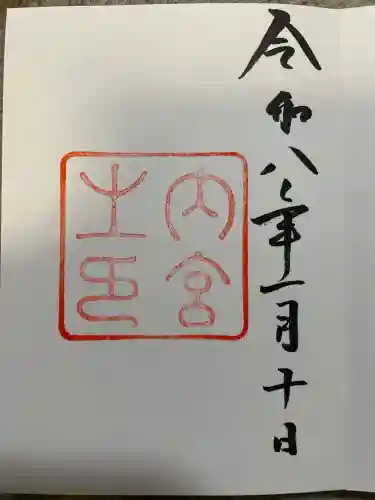 令和八年一月十日
内宮
之印